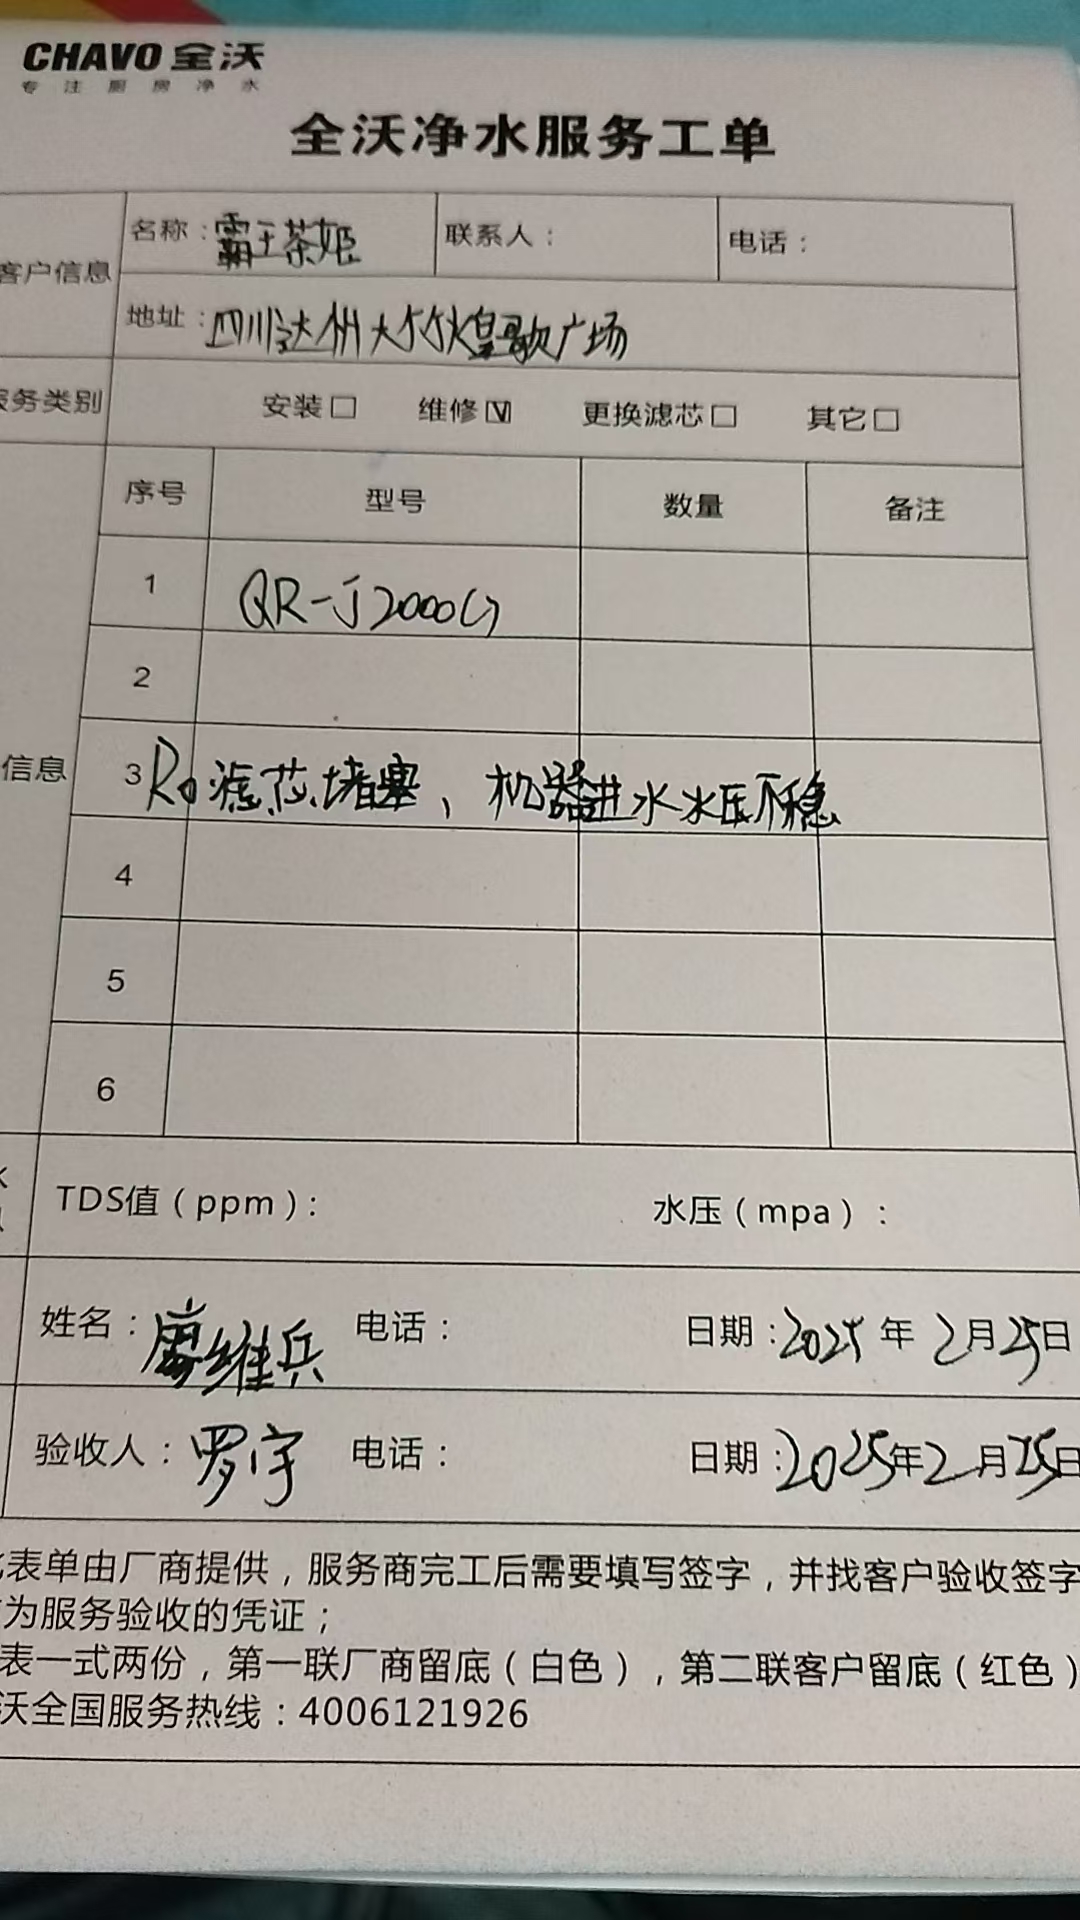 CHAVO 全沃
专注厨房净水
全沃净水服务工单
客户信息
名称：霸王茶姬 联系人： 电话：
地址：四川达州大竹煌歌广场
服务类别 安装□ 维修☑ 更换滤芯□ 其它□
序号 型号 数量 备注
1 QR-J2000G
2
信息
3 Ro滤芯堵塞、机器进水水压不稳
4
5
6
TDS值（ppm）： 水压（mpa）：
姓名：廖维兵 电话： 日期：2025年2月25日
验收人：罗宇 电话： 日期：2025年2月25日
表单由厂商提供，服务商完工后需要填写签字，并找客户验收签字
为服务验收的凭证；
表一式两份，第一联厂商留底（白色），第二联客户留底（红色）
沃全国服务热线：4006121926